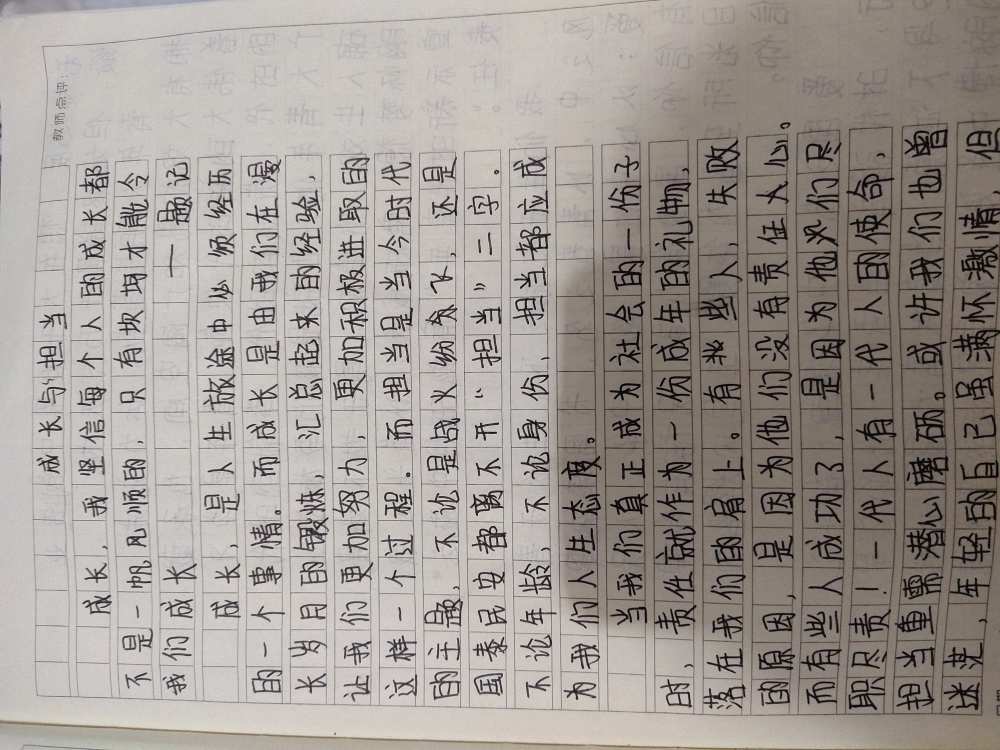 教师点评：
成长与担当
成长，我坚信每个人的成长都
不是一帆风顺的，只有坎坷才能令
我们成长 ——题记
成长，是人生旅途中必须经历
的一个事情。而成长是由我们在漫
长岁月的锻炼，汇总起来的经验，
让我们更加努力，更加积极进取的
这样一个过程。而担当是当今时代
的主题，不论是战火纷飞，还是
国泰民安都离不开“担当”二字。
不论年龄、不论身份，担当都应成
为我们人生态度。
当我们真正成为社会的一份子
时，责任就作为一份成年的礼物，
落在我们的肩上。有些人，失败
的原因，是因为他们没有责任人心。
而有些人成功了，是因为他们尽
职尽责！一代人有一代人的使命，
担当重需潜心磨砺。或许我们也曾
迷茫、年轻的自己虽满怀激情，但